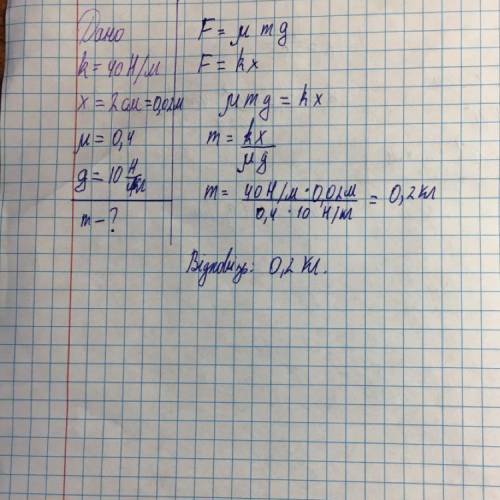 Дано
k = 40 Н/м
x = 2 см = 0,02 м
μ = 0,4
g = 10 Н/кг
m - ?
F = μmg
F = kx
μmg = kx
m = kx / μg
m = 40 Н/м · 0,02 м / 0,4 · 10 Н/кг = 0,2 кг
Відповідь: 0,2 кг.